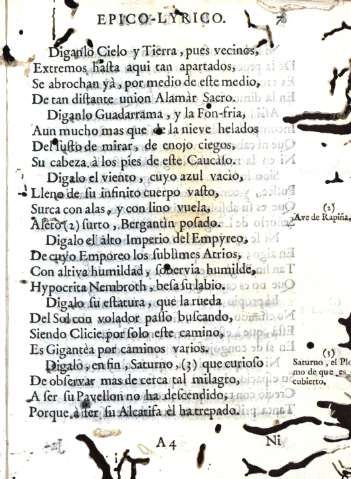 EPICO-LYRICO. 7
Diganlo Cielo y Tierra, pues vecinos,
Extremos hasta aqui tan apartados,
Se abrochan yà, por medio de este medio,
De tan distante union Alamàr Sacro.
Diganlo Guadarrama, y la Fon-fria,
Aun mucho mas que de la nieve helados
Del susto de mirar, de enojo ciegos,
Su cabeza à los pies de este Caucaso.
Digalo el viento, cuyo azul vacio,
Lleno de su infinito cuerpo vasto,
Surca con alas, y con lino vuela,
(2)
Ave de Rapiña,
Azor (2) surto, Bergantin posado.
Digalo el alto Imperio del Empyreo,
De cuyo Emporeo los sublimes Atrios,
Con altiva humildad, sobervia humilde,
Hypocrita Nembroth, besa su labio.
Digalo su estatura, que la rueda
Del Sol con volador passo buscando,
Siendo Clicie por solo este camino,
Es Gigantèa por caminos varios.
Digalo, en fin, Saturno, (3) que curioso
(3)
Saturno, el Plo
mo de que es
cubierto.
De observar mas de cerca tal milagro,
A ser su Pavellon no ha descendido,
Porque à ser su Alcatifa èl ha trepado.
A 4 Ni